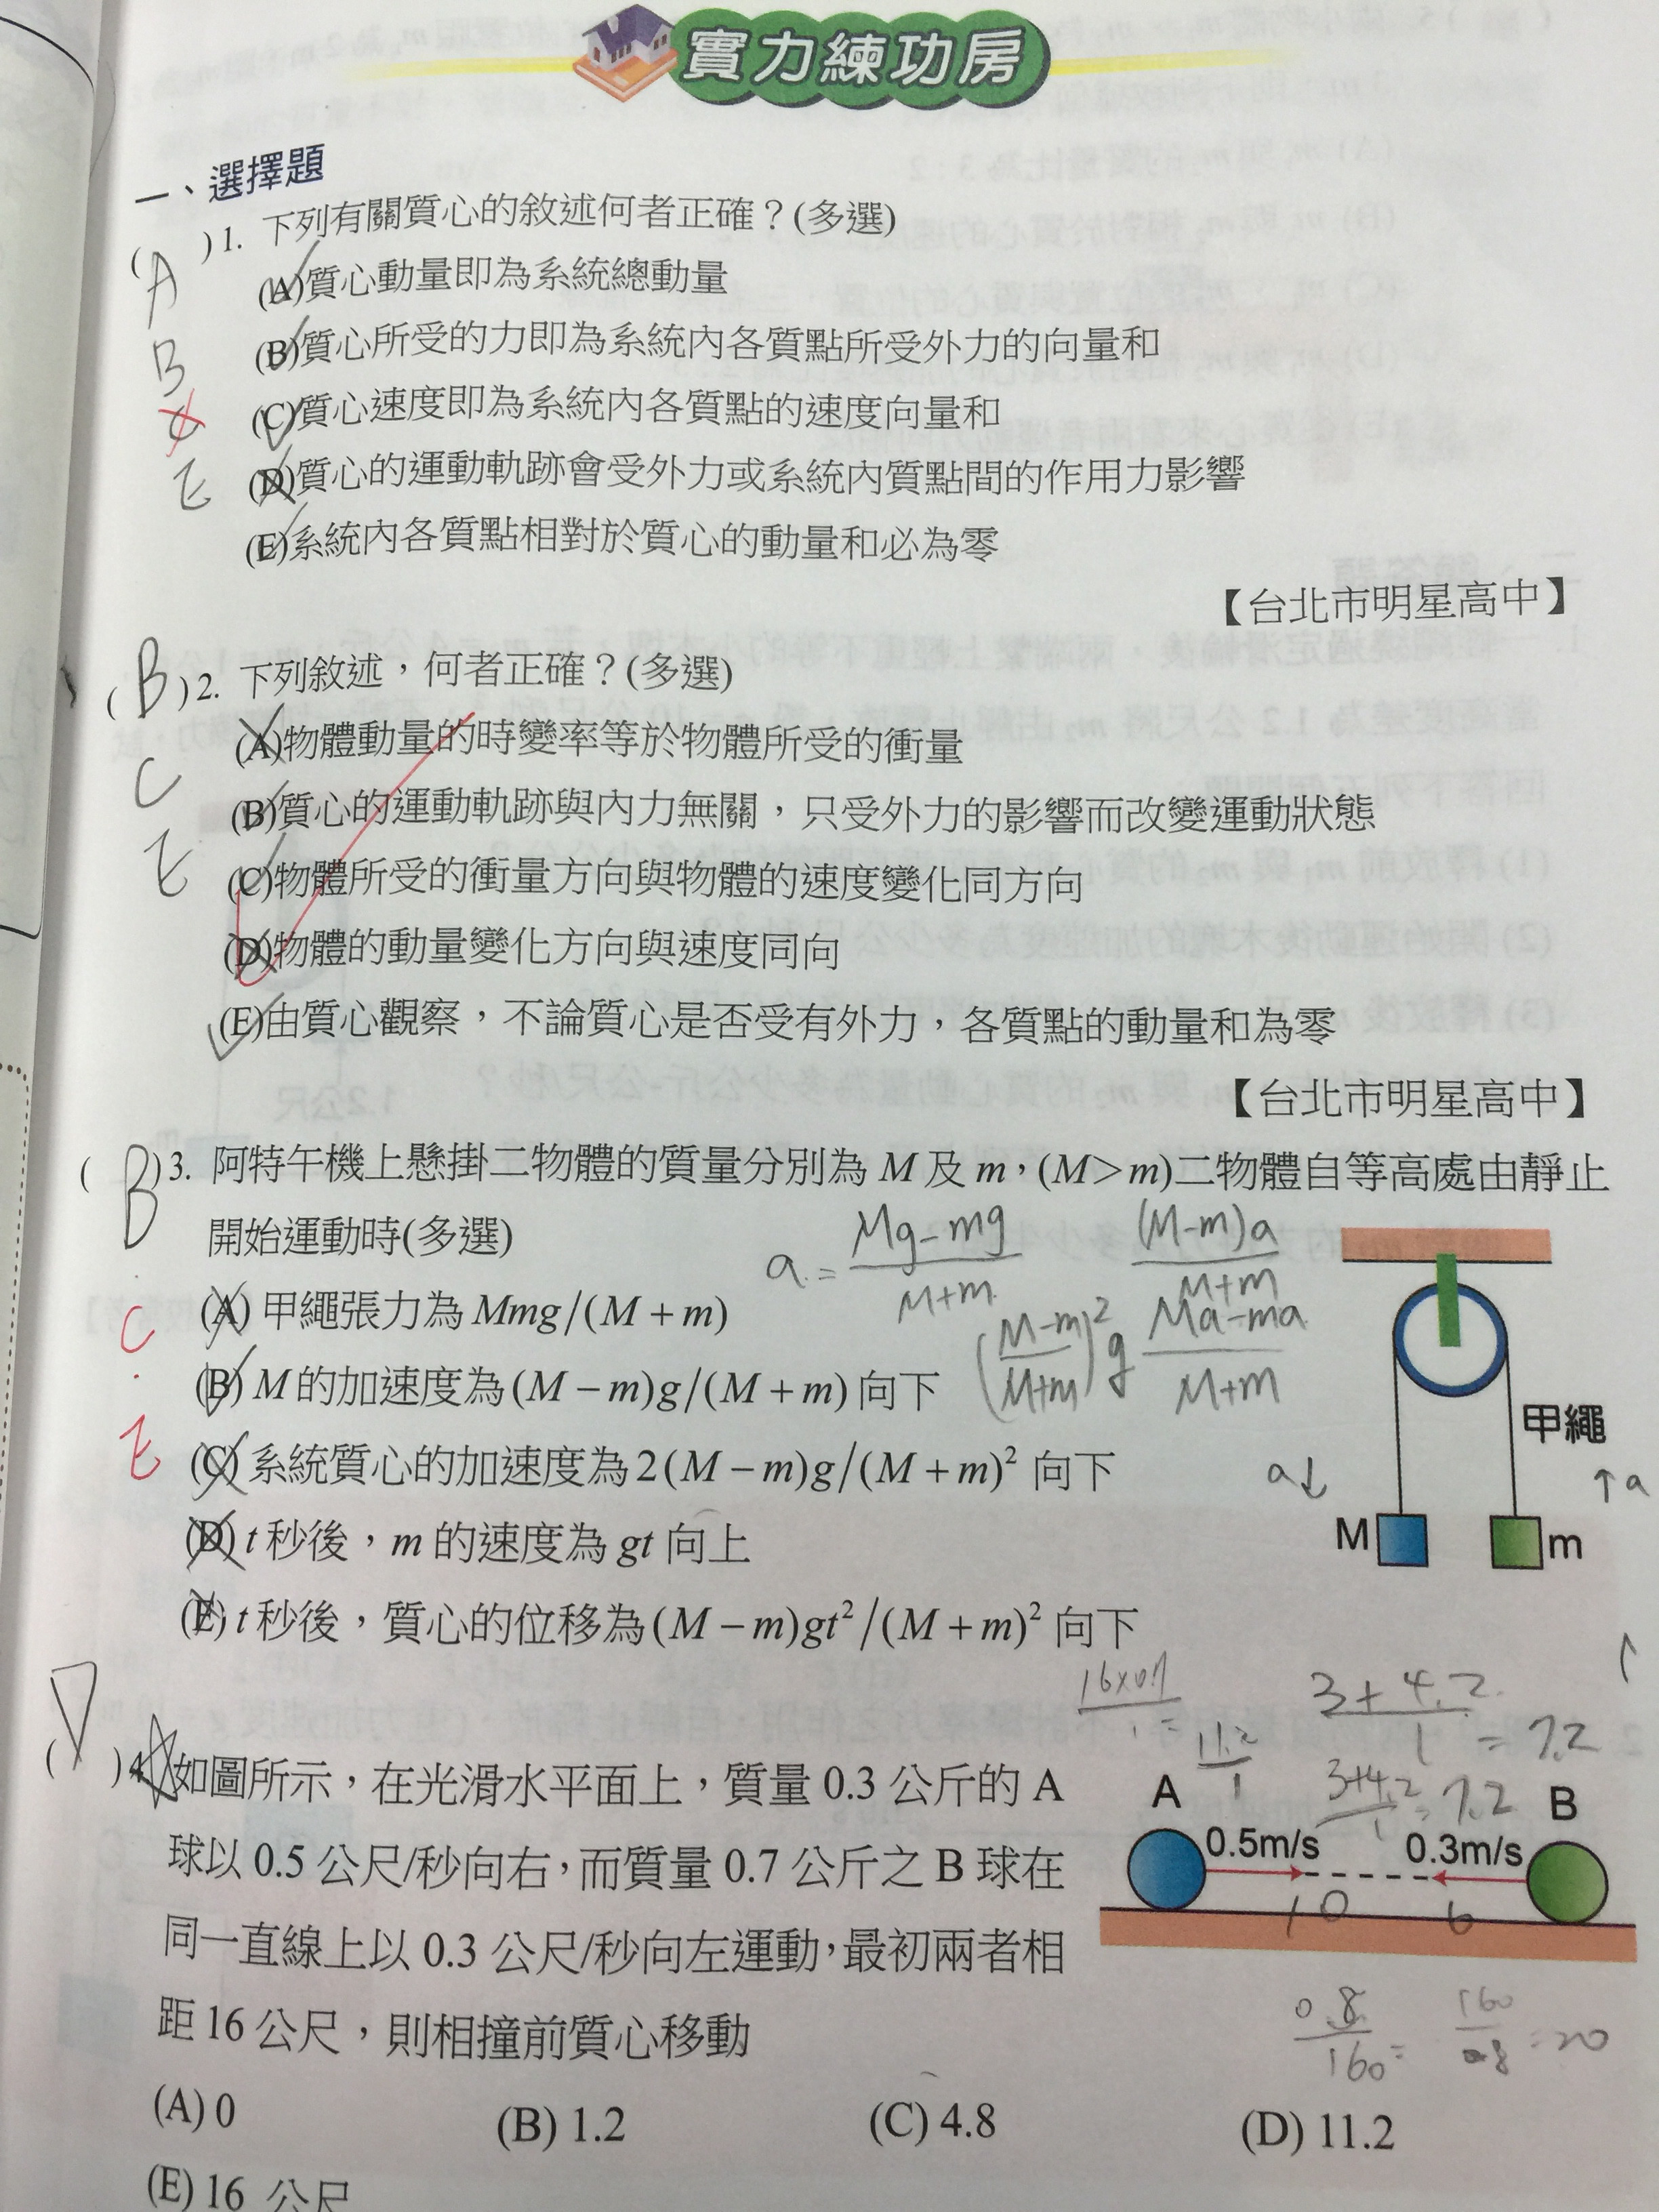 實力練功房
一、選擇題
( )1. 下列有關質心的敘述何者正確？(多選)
A
(A)質心動量即為系統總動量
B
(B)質心所受的力即為系統內各質點所受外力的向量和
(C)質心速度即為系統內各質點的速度向量和
E
(D)質心的運動軌跡會受外力或系統內質點間的作用力影響
(E)系統內各質點相對於質心的動量和必為零
【台北市明星高中】
( B )2. 下列敘述，何者正確？(多選)
(A)物體動量的時變率等於物體所受的衝量
C
(B)質心的運動軌跡與內力無關，只受外力的影響而改變運動狀態
E
(C)物體所受的衝量方向與物體的速度變化同方向
(D)物體的動量變化方向與速度同向
(E)由質心觀察，不論質心是否受有外力，各質點的動量和為零
【台北市明星高中】
( B )3. 阿特午機上懸掛二物體的質量分別為 M 及 m，(M>m)二物體自等高處由靜止
開始運動時(多選)
a = Mg-mg / M+m
(M-m)a / M+m
C
(A) 甲繩張力為 Mmg/(M + m)
(M-m / M+m)² g
Ma-ma / M+m
(B) M 的加速度為 (M − m)g/(M + m) 向下
甲繩
E
(C) 系統質心的加速度為 2(M − m)g/(M + m)² 向下
a↓
↑a
(D) t 秒後，m 的速度為 gt 向上
M
m
(E) t 秒後，質心的位移為 (M − m)gt²/(M + m)² 向下
16×0.7 / 1 =
11.2 / 1
3+4.2 / 1 = 7.2
3+4.2 / 1 = 7.2
( D )4. 如圖所示，在光滑水平面上，質量 0.3 公斤的 A
球以 0.5 公尺/秒向右，而質量 0.7 公斤之 B 球在
同一直線上以 0.3 公尺/秒向左運動，最初兩者相
距 16 公尺，則相撞前質心移動
A
B
0.5m/s
0.3m/s
10
6
0.8 / 160 =
160 / 0.8 = 20
(A) 0 (B) 1.2 (C) 4.8 (D) 11.2
(E) 16 公尺